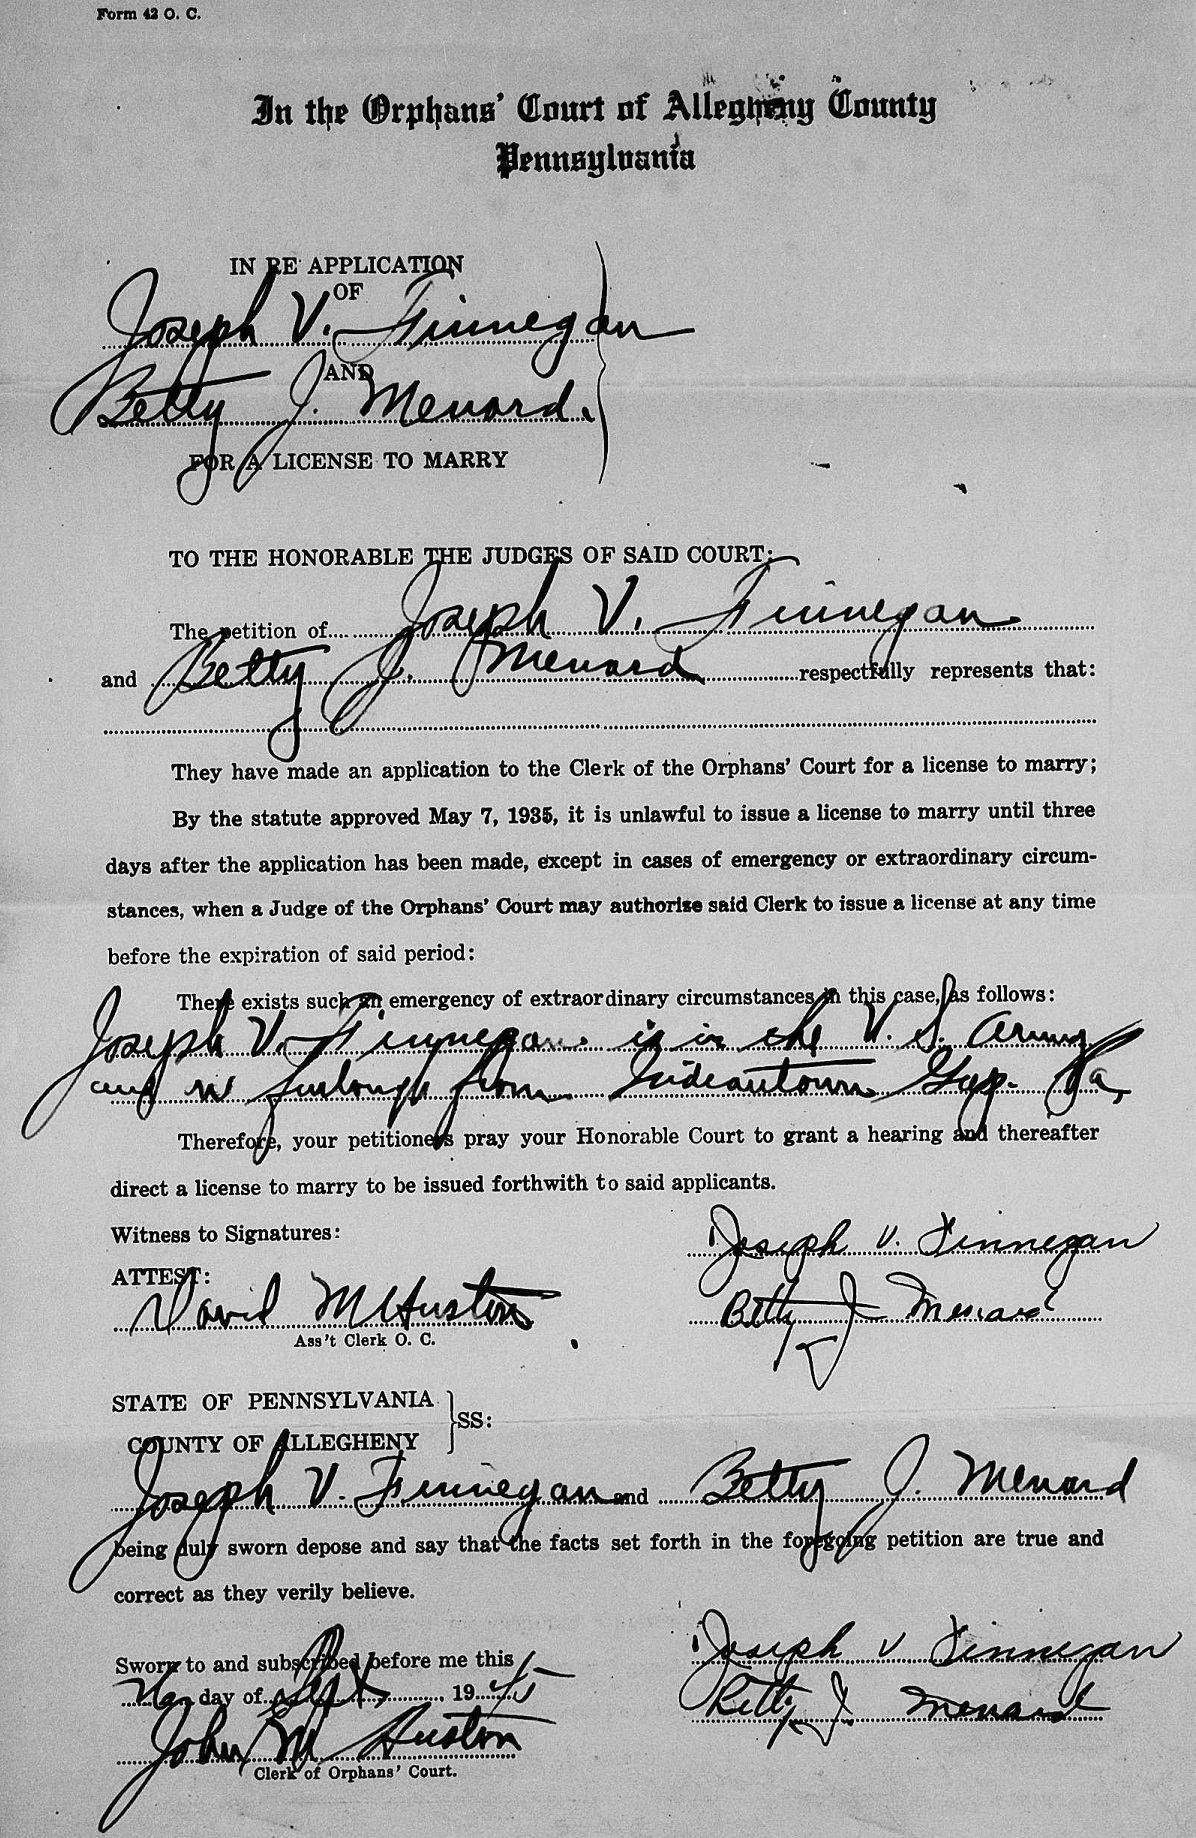 Form 42 O. C.
In the Orphans' Court of Allegheny County
Pennsylvania
IN RE APPLICATION
OF
Joseph V. Finnegan
AND
Betty J. Menard.
FOR A LICENSE TO MARRY
TO THE HONORABLE THE JUDGES OF SAID COURT:
The petition of Joseph V. Finnegan
and Betty J. Menard respectfully represents that:
They have made an application to the Clerk of the Orphans' Court for a license to marry;
By the statute approved May 7, 1935, it is unlawful to issue a license to marry until three
days after the application has been made, except in cases of emergency or extraordinary circum-
stances, when a Judge of the Orphans' Court may authorize said Clerk to issue a license at any time
before the expiration of said period:
There exists such an emergency of extraordinary circumstances in this case, as follows:
Joseph V. Finnegan is in the U. S. Army
and on furlough from Indeantown Gap. Pa,
Therefore, your petitioners pray your Honorable Court to grant a hearing and thereafter
direct a license to marry to be issued forthwith to said applicants.
Witness to Signatures:
Joseph V. Finnegan
ATTEST:
David M Huston
Betty J Menard
Ass't Clerk O. C.
STATE OF PENNSYLVANIA
SS:
COUNTY OF ALLEGHENY
Joseph V. Finnegan and Betty J. Menard
being duly sworn depose and say that the facts set forth in the foregoing petition are true and
correct as they verily believe.
Sworn to and subscribed before me this
Joseph V Finnegan
day of Sept 1945
Betty J. Menard
John M. Huston
Clerk of Orphans' Court.